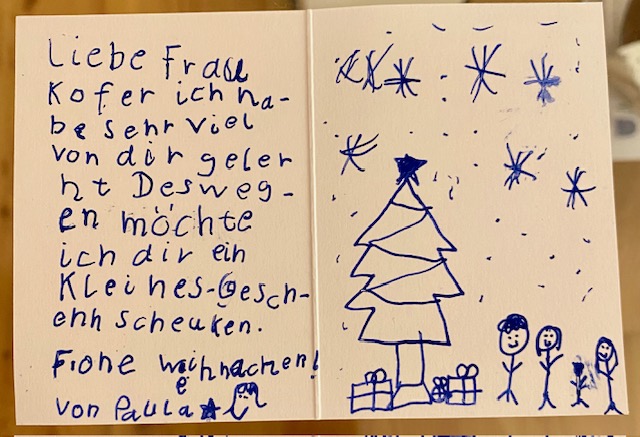 Liebe Frau
Kofer ich ha-
be sehr viel
von dir geler
nt Desweg-
en möchte
ich dir ein
Kleines-Gesch-
enh scheuken.
Frohe Weihnachen!
von Paula